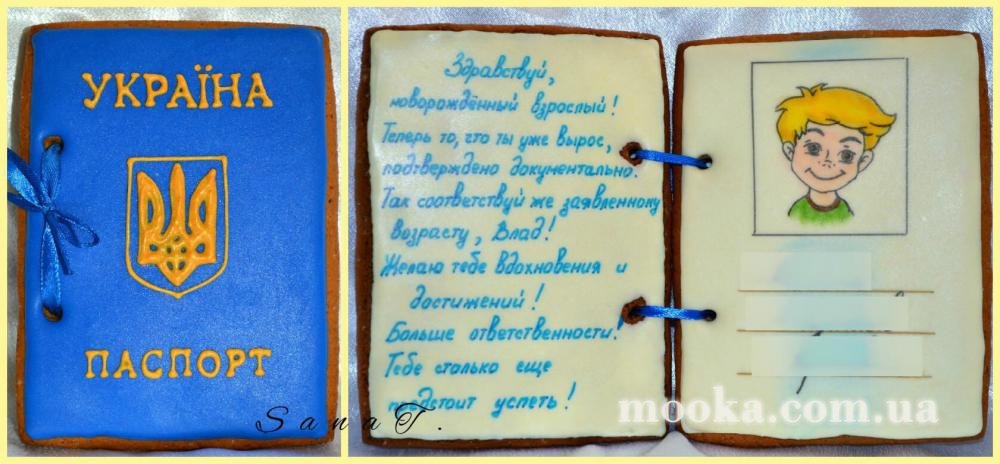 УКРАЇНА
ПАСПОРТ
SanaT.
Здравствуй,
новорождённый взрослый!
Теперь то, что ты уже вырос,
подтверждено документально.
Так соответствуй же заявленному
возрасту, Влад!
Желаю тебе вдохновения и
достижений!
Больше ответственности!
Тебе столько еще
предстоит успеть!
mooka.com.ua